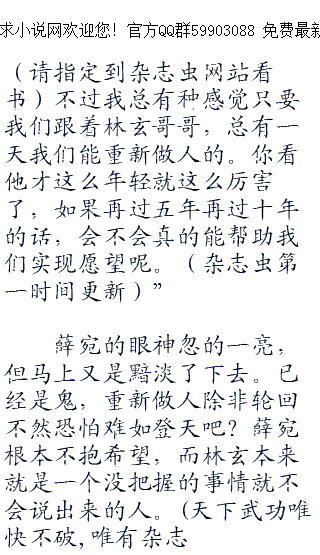 求小说网欢迎您！官方QQ群59903088 免费最新
（请指定到杂志虫网站看
书）不过我总有种感觉只要
我们跟着林玄哥哥，总有一
天我们能重新做人的。你看
他才这么年轻就这么厉害
了，如果再过五年再过十年
的话，会不会真的能帮助我
们实现愿望呢。（杂志虫第
一时间更新）”
薛宛的眼神忽的一亮，
但马上又是黯淡了下去。已
经是鬼，重新做人除非轮回
不然恐怕难如登天吧？薛宛
根本不抱希望，而林玄本来
就是一个没把握的事情就不
会说出来的人。(天下武功唯
快不破,唯有杂志